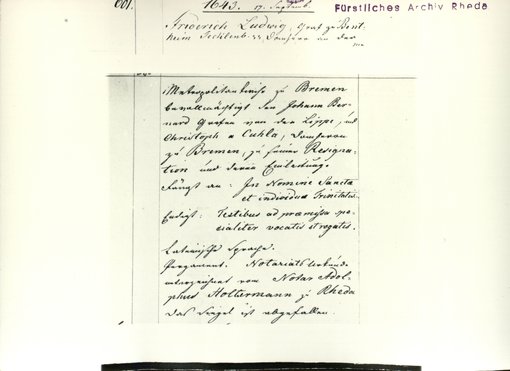 001.
1643. 17. Septemb.
Fürstliches Archiv Rheda
Friderich Ludwig, Graf zu Bent-
heim Tecklenb: Domherr an der
Metropolitankirche zu Bremen
bevollmächtigt den Johann Ber-
nard Grafen von der Lippe, und
Christoph a Cuhla, Domherrn
zu Bremen, zu seiner Resigna-
tion und deren Einleitung.
Fängt an: In Nomine Sanctae
et individuae Trinitatis.
Endigt: Testibus ad praemissa spe-
cialiter vocatis et rogatis.
Lateinische Sprache.
Pergament. Notariats Urkunde
unterzeichnet von Notar Adol-
phus Holtermann zu Rheda
das Siegel ist abgefallen.